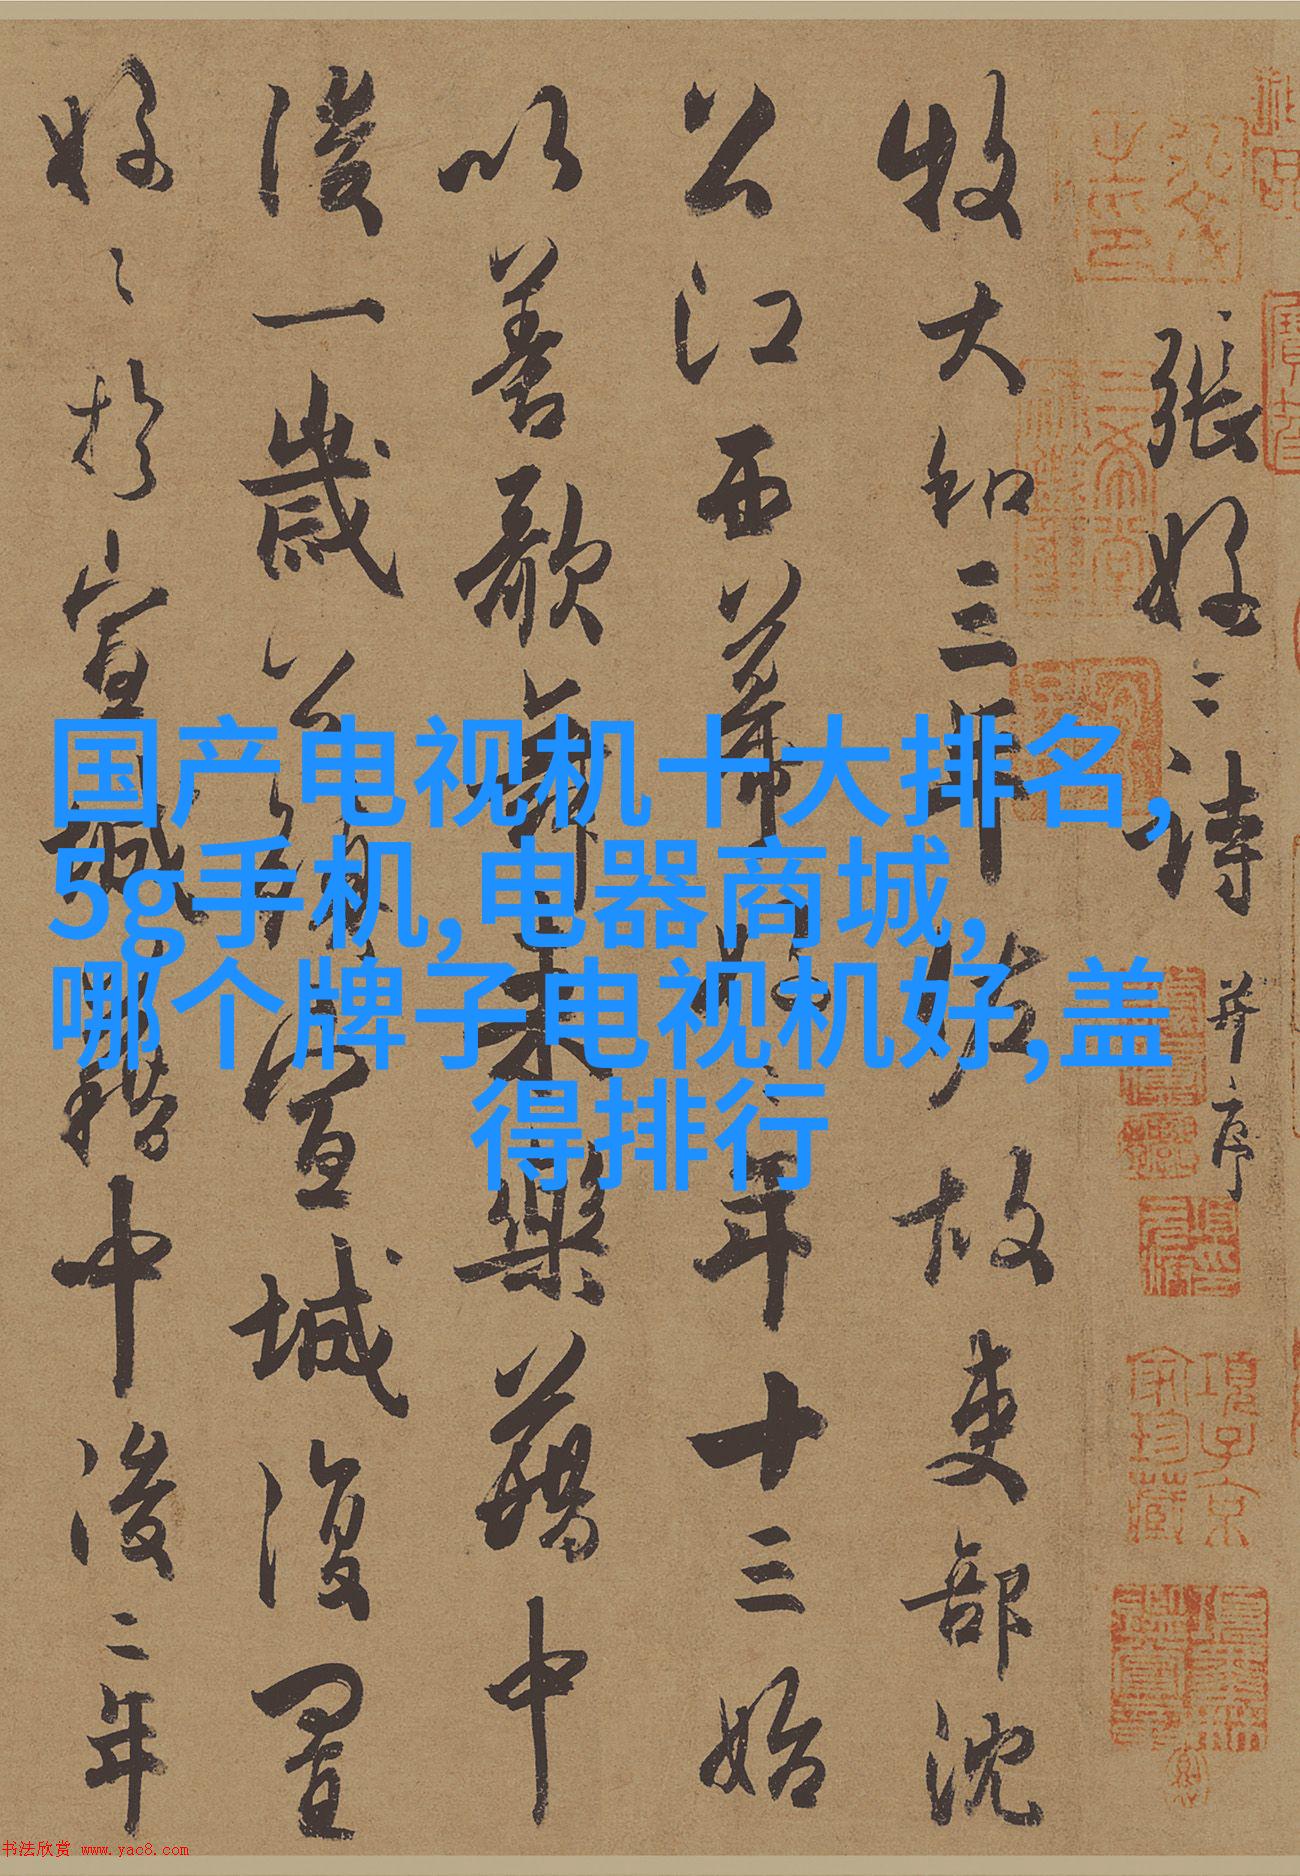 張好〻詩 并序
牧大和三年佐故吏部沈
公江西幕好〻年十三始
以善歌舞来樂籍中
後一歲公鎮宣城復置
好〻於宣城籍中後二年
国产电视机十大排名,
5g手机,电器商城,
哪个牌子电视机好,盖
得排行
項子京
家珍藏
书法欣赏 www.yac8.com